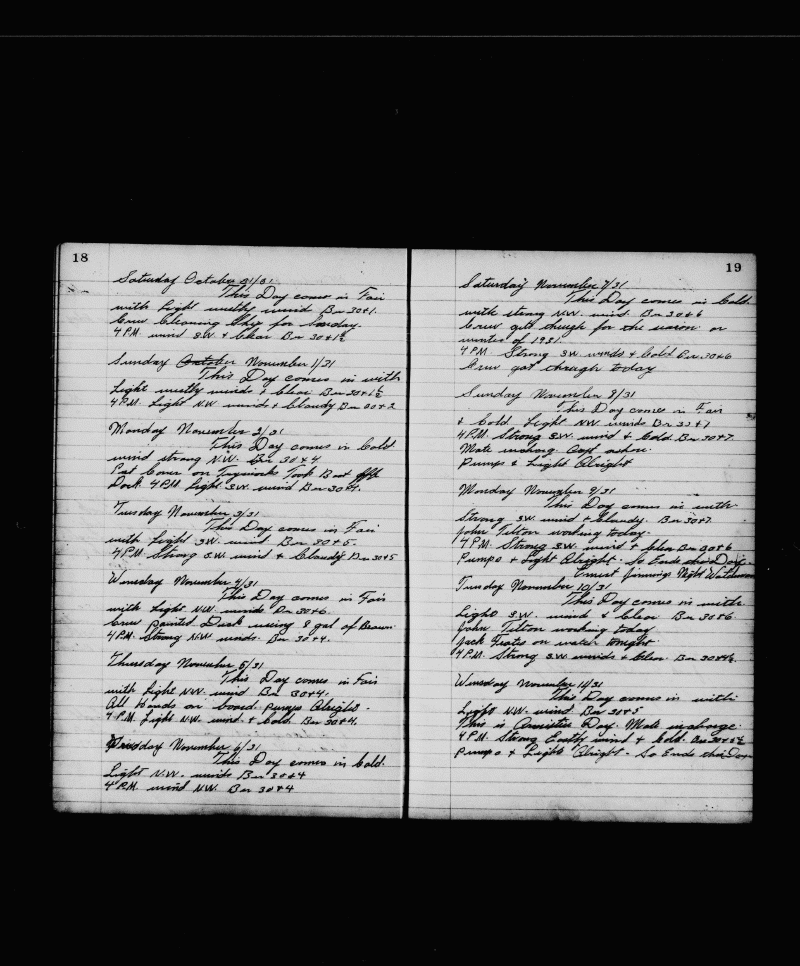 18
Saturday October 31/31
This Day comes in Fair
with Light westly wind Bar 30+1.
Crew Cleaning Ship for Sunday.
4 P.M. wind S.W. & Clear Bar 30+1½
Sunday October November 1/31
This Day comes in with
Light westly winds & Clear Bar 30+1½
4 P.M. Light NW winds & Cloudy Bar 30+2
Monday November 2/31
This Day comes in Cold
wind strong N.W. Bar 30+4
Put Cover on Tryworks Took Boat off
Dock 4 P.M. Light S.W. wind Bar 30+4.
Tuesday November 3/31
This Day comes in Fair
with Light S.W. wind Bar 30+5.
4 P.M. Strong S.W. wind & Cloudy Bar 30+5
Wensday November 4/31
This Day comes in Fair
with Light N.W. winds Bar 30+6.
Crew painted Deck using 8 gal of Brown
4 P.M. Strong N.W. winds. Bar 30+4.
Thursday November 5/31
This Day comes in Fair
with Light N.W. wind Bar 30+4.
All Hands on board. pumps Alright.
4 P.M. Light N.W. wind & Cold. Bar 30+4.
Friday November 6/31
This Day comes in Cold.
Light N.W. winds Bar 30+4
4 P.M. wind N.W. Bar 30+4
19
Saturday November 7/31
This Day comes in Cold.
with strong N.W. wind. Bar 30+6
Crew get through for the season or
winter of 1931.
4 P.M. Strong S.W. winds & Cold Bar 30+6
Crew got through today
Sunday November 8/31
This Day comes in Fair
& Cold. Light N.W. winds Bar 30+7
4 P.M. Strong S.W. wind & Cold. Bar 30+7.
Mate incharg Capt ashore.
Pumps & Light Alright
Monday November 9/31
This Day comes in with
Strong S.W. wind & Cloudy. Bar 30+7.
John Tilton working today.
4 P.M. Strong S.W. wind & Clear Bar 30+6
Pumps & Light Alright. So Ends this Day.
Ernest Jennings Night Watchman
Tuesday November 10/31
This Day comes in with
Light S.W. wind & Clear Bar 30+6
John Tilton working today
Jack Frates on watch tonight
4 P.M. Strong S.W. winds & Clear. Bar 30+4½
Wensday November 11/31
This Day comes in with
Light N.W. wind Bar 30+5
This is Armistice Day. Mate incharge.
4 P.M. Strong South wind & Cold. Bar 30+5½
Pumps & Light Alright. So Ends this Day